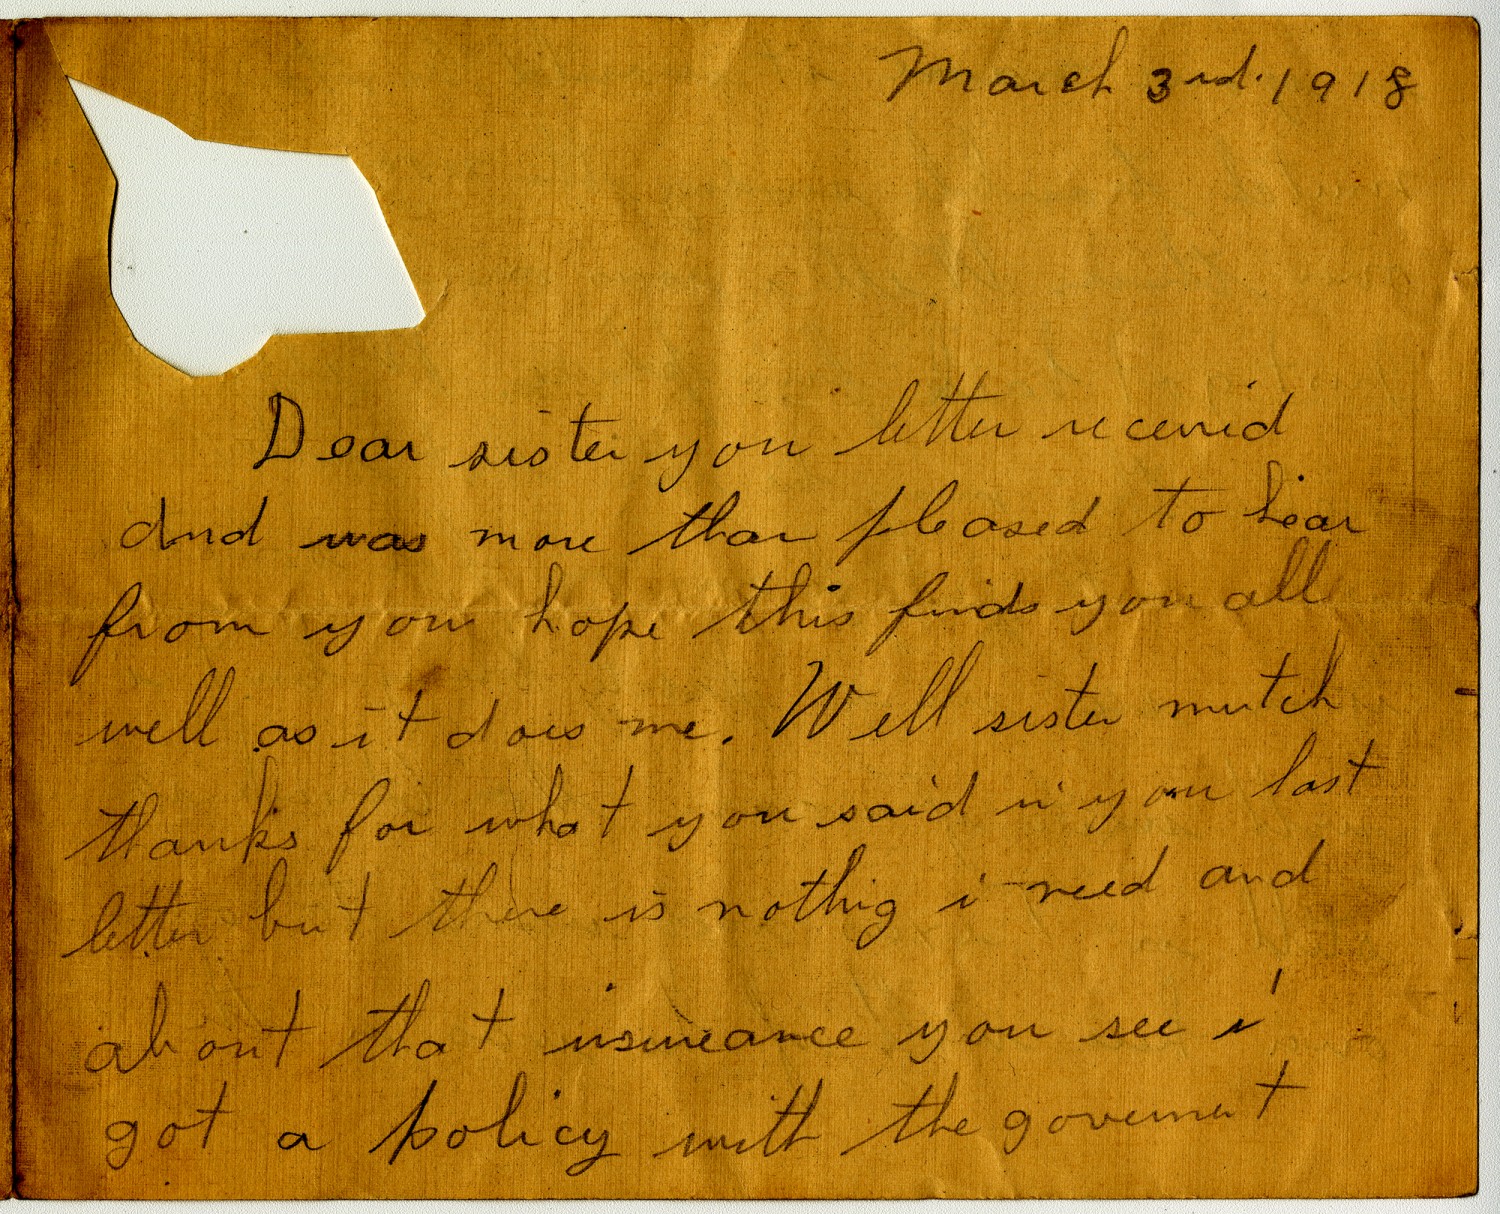 March 3rd. 1918
Dear sister your letter receivid
And was more than pleased to hear
from you hope this finds you all
well as it does me. Well sister mutch
thanks for what you said in your last
letter but there is nothig i need and
about that insureance you see i
got a policy with the goverment